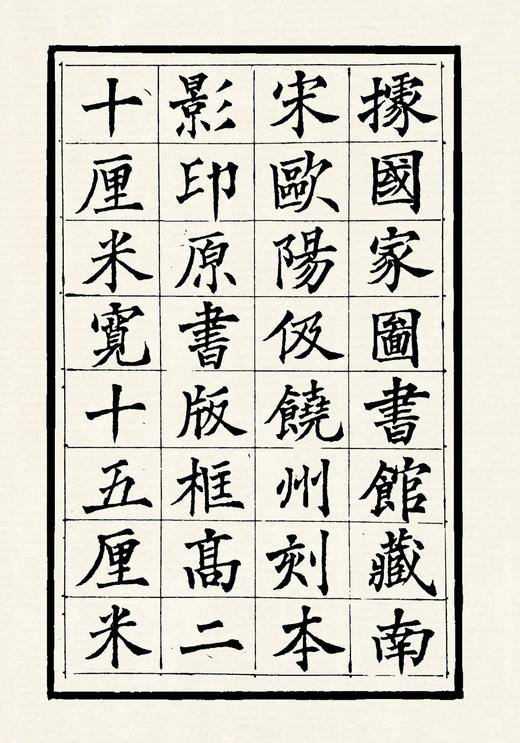 據國家圖書館藏南
宋歐陽伋饒州刻本
影印原書版框高二
十厘米寬十五厘米